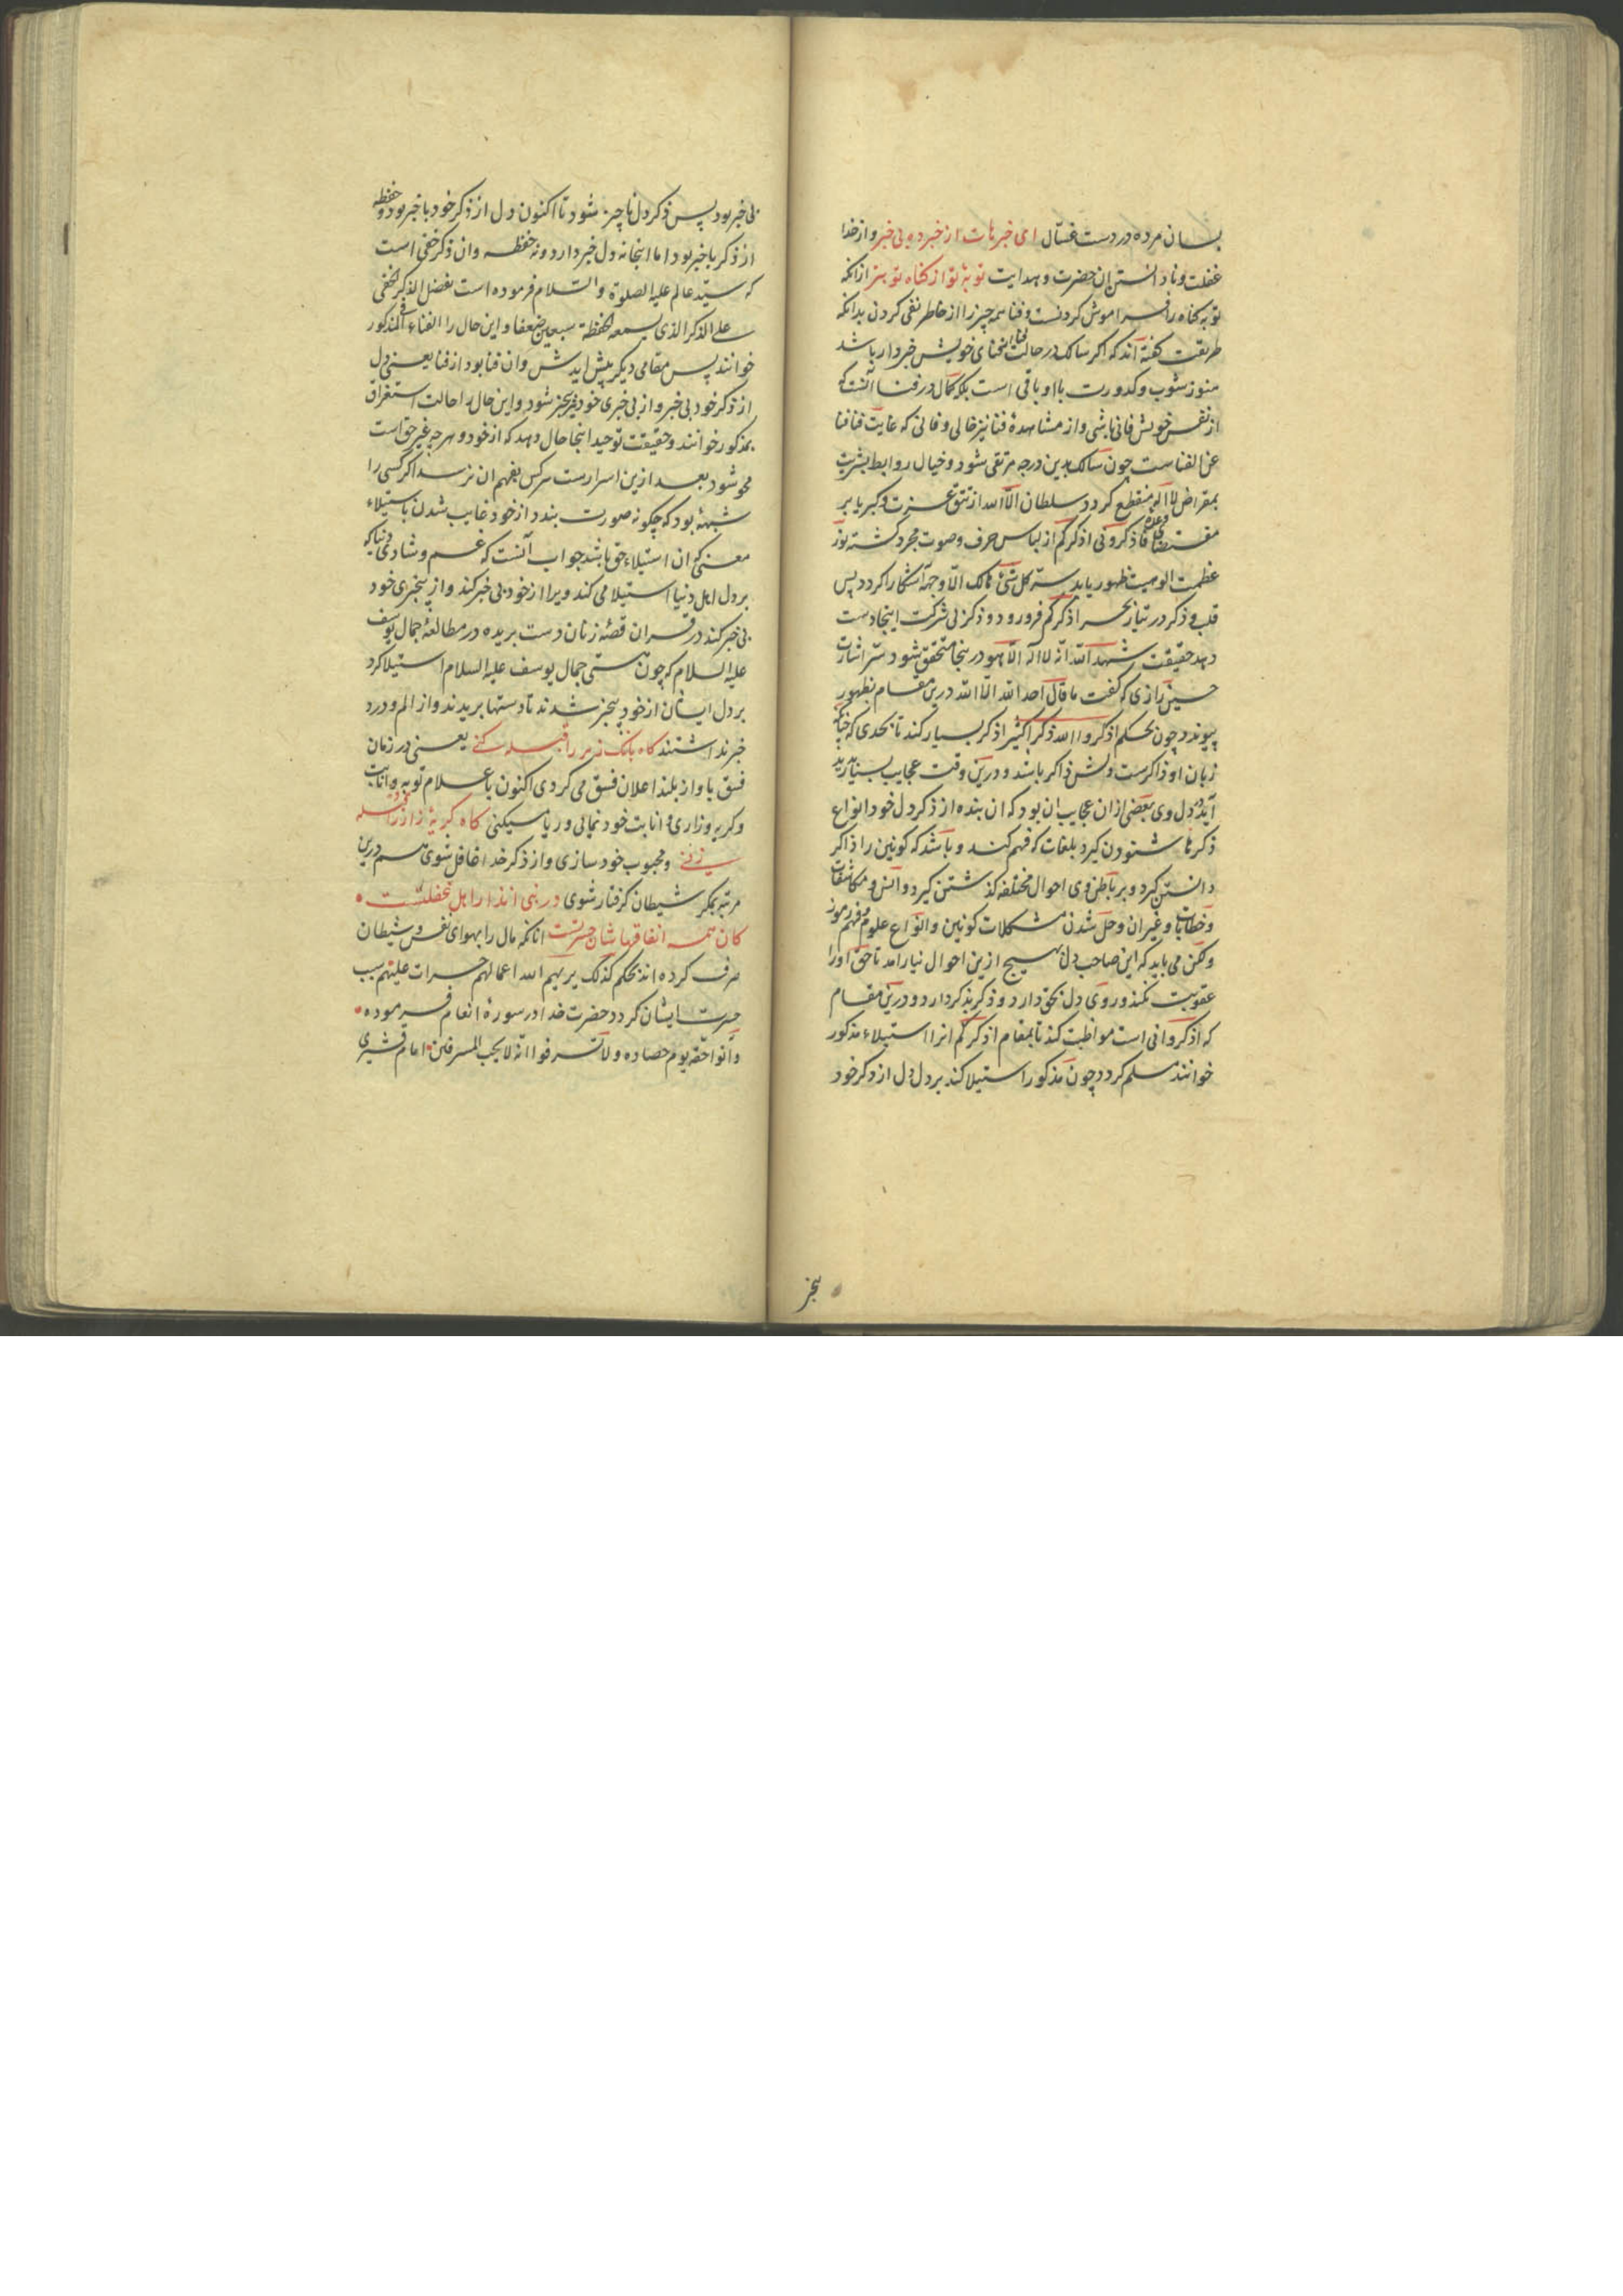 بسان مرده در دست غسّال ای خبرهات از خبرده بی خبر و از خدا
غفلت و نادانستن ان حضرت و هدایت توبهٔ تو از کناه تو بتر ازانکه
توبه کناه را فراموش کردنست و فنا همه چیز را از خاطر نفی کردن بدانکه
طریقت کفته اند که اکر سالک در حالت فنا از فنای خویش خبردار باشد
هنوز شوب و کدورت با او باقی است بلکه کمال در فنا آنست که
از نفس خویش فانی باشی و از مشاهدهٔ فنا نیز خالی و فانی که غایت فنا فنا
عن الفناست چون سالک بدین درجه مرتقی شود و خیال روابط بشریت
بمقراض لا اله منقطع کردد سلطان الّا الله از تتق عزت و کبریا بر
مقتضای وعده فاذکرونی اذکرکم از لباس حرف و صوت مجرد کشته نور
عظمت الوهیت ظهور یابد سرّ کل شئ هالک الّا وجهه آشکارا کردد پس
قلب و ذکر در تیار بحر اذکرکم فرو رود و ذکر بی شرکت اینجا دست
دهد حقیقت شهد الله انه لا اله الّا هو درینجا متحقق شود سرّ اشارت
حسین رازی که کفت ما قال احد الله الّا الله درین مقام بظهور
پیوندد چون بحکم اذکروا الله ذکرا کثیرا ذکر بسیار کند تا بحدی که چنانکه
زبان او ذاکرست دلش ذاکر باشد و درین وقت عجایب بسیار پدید
آید در دل وی بعضی ازان عجایب ان بود که ان بنده از ذکر دل خود انواع
ذکرها شنودن کیرد بلغات که فهم کند و باشد که کونین را ذاکر
دانستن کیرد و بر باطن وی احوال مختلفه کذشتن کیرد و انس و مکاشفات
و خطابات و غیر ان و حل شدن مشکلات کونین و انواع علوم و فهم رموز
و لکن می باید که این صاحب دل بهیچ ازین احوال نیارامد تا حق او را
عقوبت نکند و روی دل بحق دارد و ذکر بذکر دارد و درین مقام
که اذکروانی است مواظبت کند تا بمقام اذکرکم انرا استیلاء مذکور
خوانند مسلم کردد چون مذکور استیلا کند بر دل دل از ذکر خود
بیخبر
بی خبر بود پس ذکر دل ناچیز شود تا اکنون دل از ذکر خود با خبر بود و حفظه
از ذکر با خبر بود اما اینجا نه دل خبر دارد و نه حفظه و ان ذکر خفی است
که سید عالم علیه الصلوة و السلام فرموده است تفضل الذکر الخفی
علی الذکر الذی یسمعه الحفظة سبعین ضعفا و این حال را الفناء فی المذکور
خوانند پس مقامی دیکر پیش ایدش و ان فنا بود از فنا یعنی دل
از ذکر خود بی خبر و از بی خبری خود نیز بیخبر شود و این حال را حالت استغراق
بمذکور خوانند و حقیقت توحید اینجا حال دهد که از خود و هر چه غیر حق است
محو شود بعد ازین اسرارست هر کس بفهم ان نرسد اکر کسی را
شبهه بود که چکونه صورت بندد از خود غایب شدن باستیلاء
معنی که ان استیلاء حق باشد جواب آنست که غم و شادی دنیا که
بر دل اهل دنیا استیلا می کند ویرا از خود بی خبر کند و از بیخبری خود
بی خبر کند در قران قصهٔ زنان دست بریده در مطالعهٔ جمال یوسف
علیه السلام که چون هستی جمال یوسف علیه السلام استیلا کرد
بر دل ایشان از خود بیخبر شدند تا دستها بریدند و از الم و درد
خبر نداشتند کاه بانک زیر را قبله کنی یعنی در زمان
فسق باواز بلند اعلان فسق می کردی اکنون باعلام توبه و انابت
و کریه و زاری و انابت خود نمایی و ریا میکنی کاه کریهٔ زار را قبله
زنی و محبوب خود سازی و از ذکر خدا غافل شوی هم درین
مرتبه بمکر شیطان کرفتار شوی در نبی انذار اهل غفلتست
کان همه انفاقهاشان حسرتست انانکه مال را بهوای نفس و شیطان
صرف کرده اند بحکم کذلک یریهم الله اعمالهم حسرات علیهم سبب
حسرت ایشان کردد حضرت خدا در سورهٔ انعام فرموده
و آتوا حقه یوم حصاده و لا تسرفوا انه لا یحب المسرفین امام قشیری